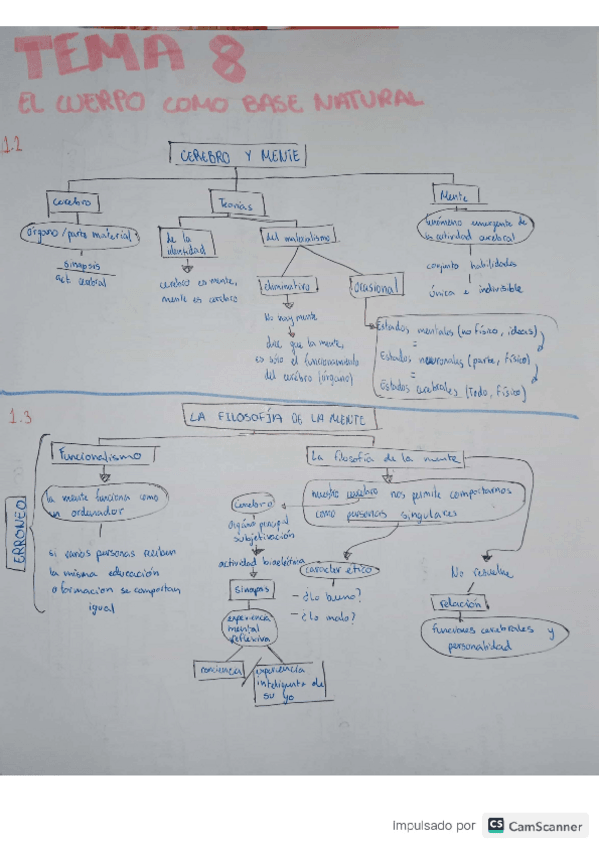 TEMA 8
EL CUERPO COMO BASE NATURAL
1.2
CEREBRO Y MENTE
Cerebro
Teorías
Mente
órgano/parte material
sinapsis
act cerebral
de la
identidad
cerebro es mente,
mente es cerebro
del materialismo
eliminativo
No hay mente
dice que la mente,
es sólo el funcionamiento
del cerebro (órgano)
ocasional
Estados mentales (no físico, ideas)
=
Estados neuronales (parte, físico)
=
Estados cerebrales (todo, físico)
fenómeno emergente de
la actividad cerebral
conjunto habilidades
única e indivisible
1.3
LA FILOSOFÍA DE LA MENTE
ERRONEO
Funcionalismo
la mente funciona como
un ordenador
si varias personas reciben
la misma educación
o formacion se comportan
igual
La filosofía de la mente
nuestro cerebro nos permite comportarnos
como personas singulares
Cerebro
órgano principal
subjetivación
actividad bioeléctrica
sinapsis
experiencia
mental
reflexiva
conciencia
experiencia
inteligente de
su yo
caracter ético
- ¿Lo bueno?
- ¿Lo malo?
No resuelve
relación
funciones cerebrales y
personalidad
Impulsado por CS CamScanner